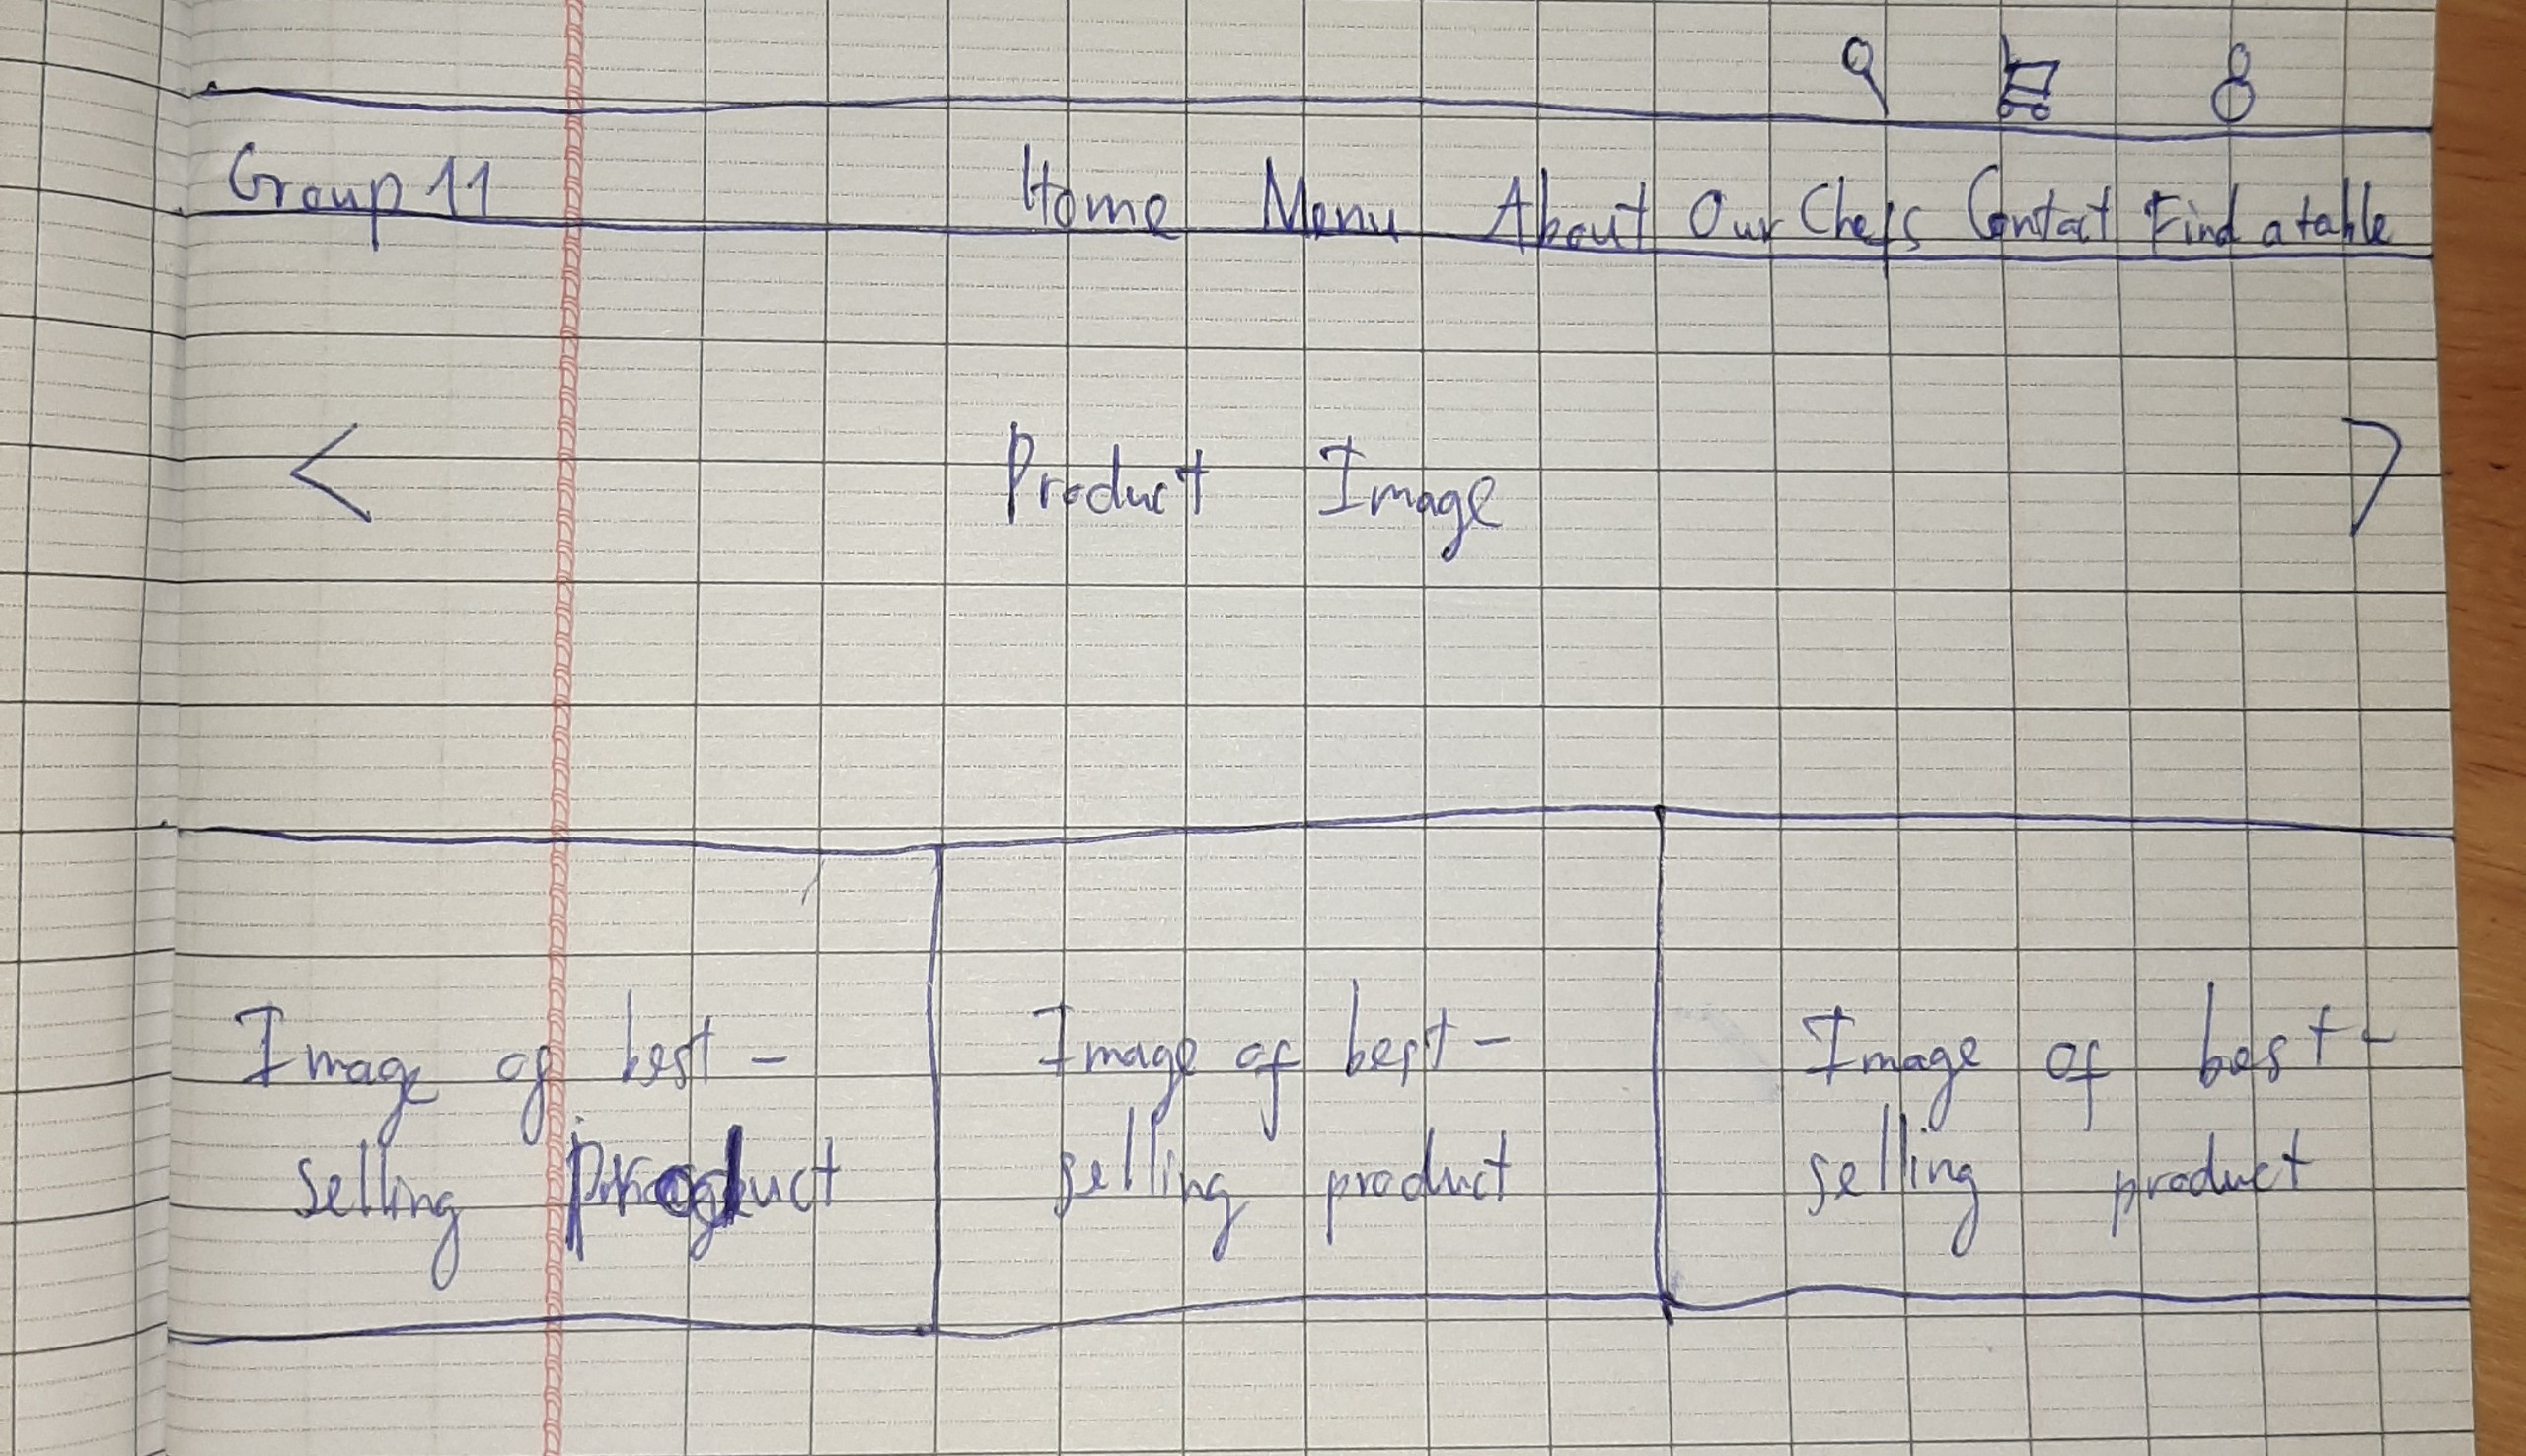 Group 11 Home Menu About Our Chefs Contact Find a table
< Product Image >
Image of best-
selling product
Image of best-
selling product
Image of best-
selling product